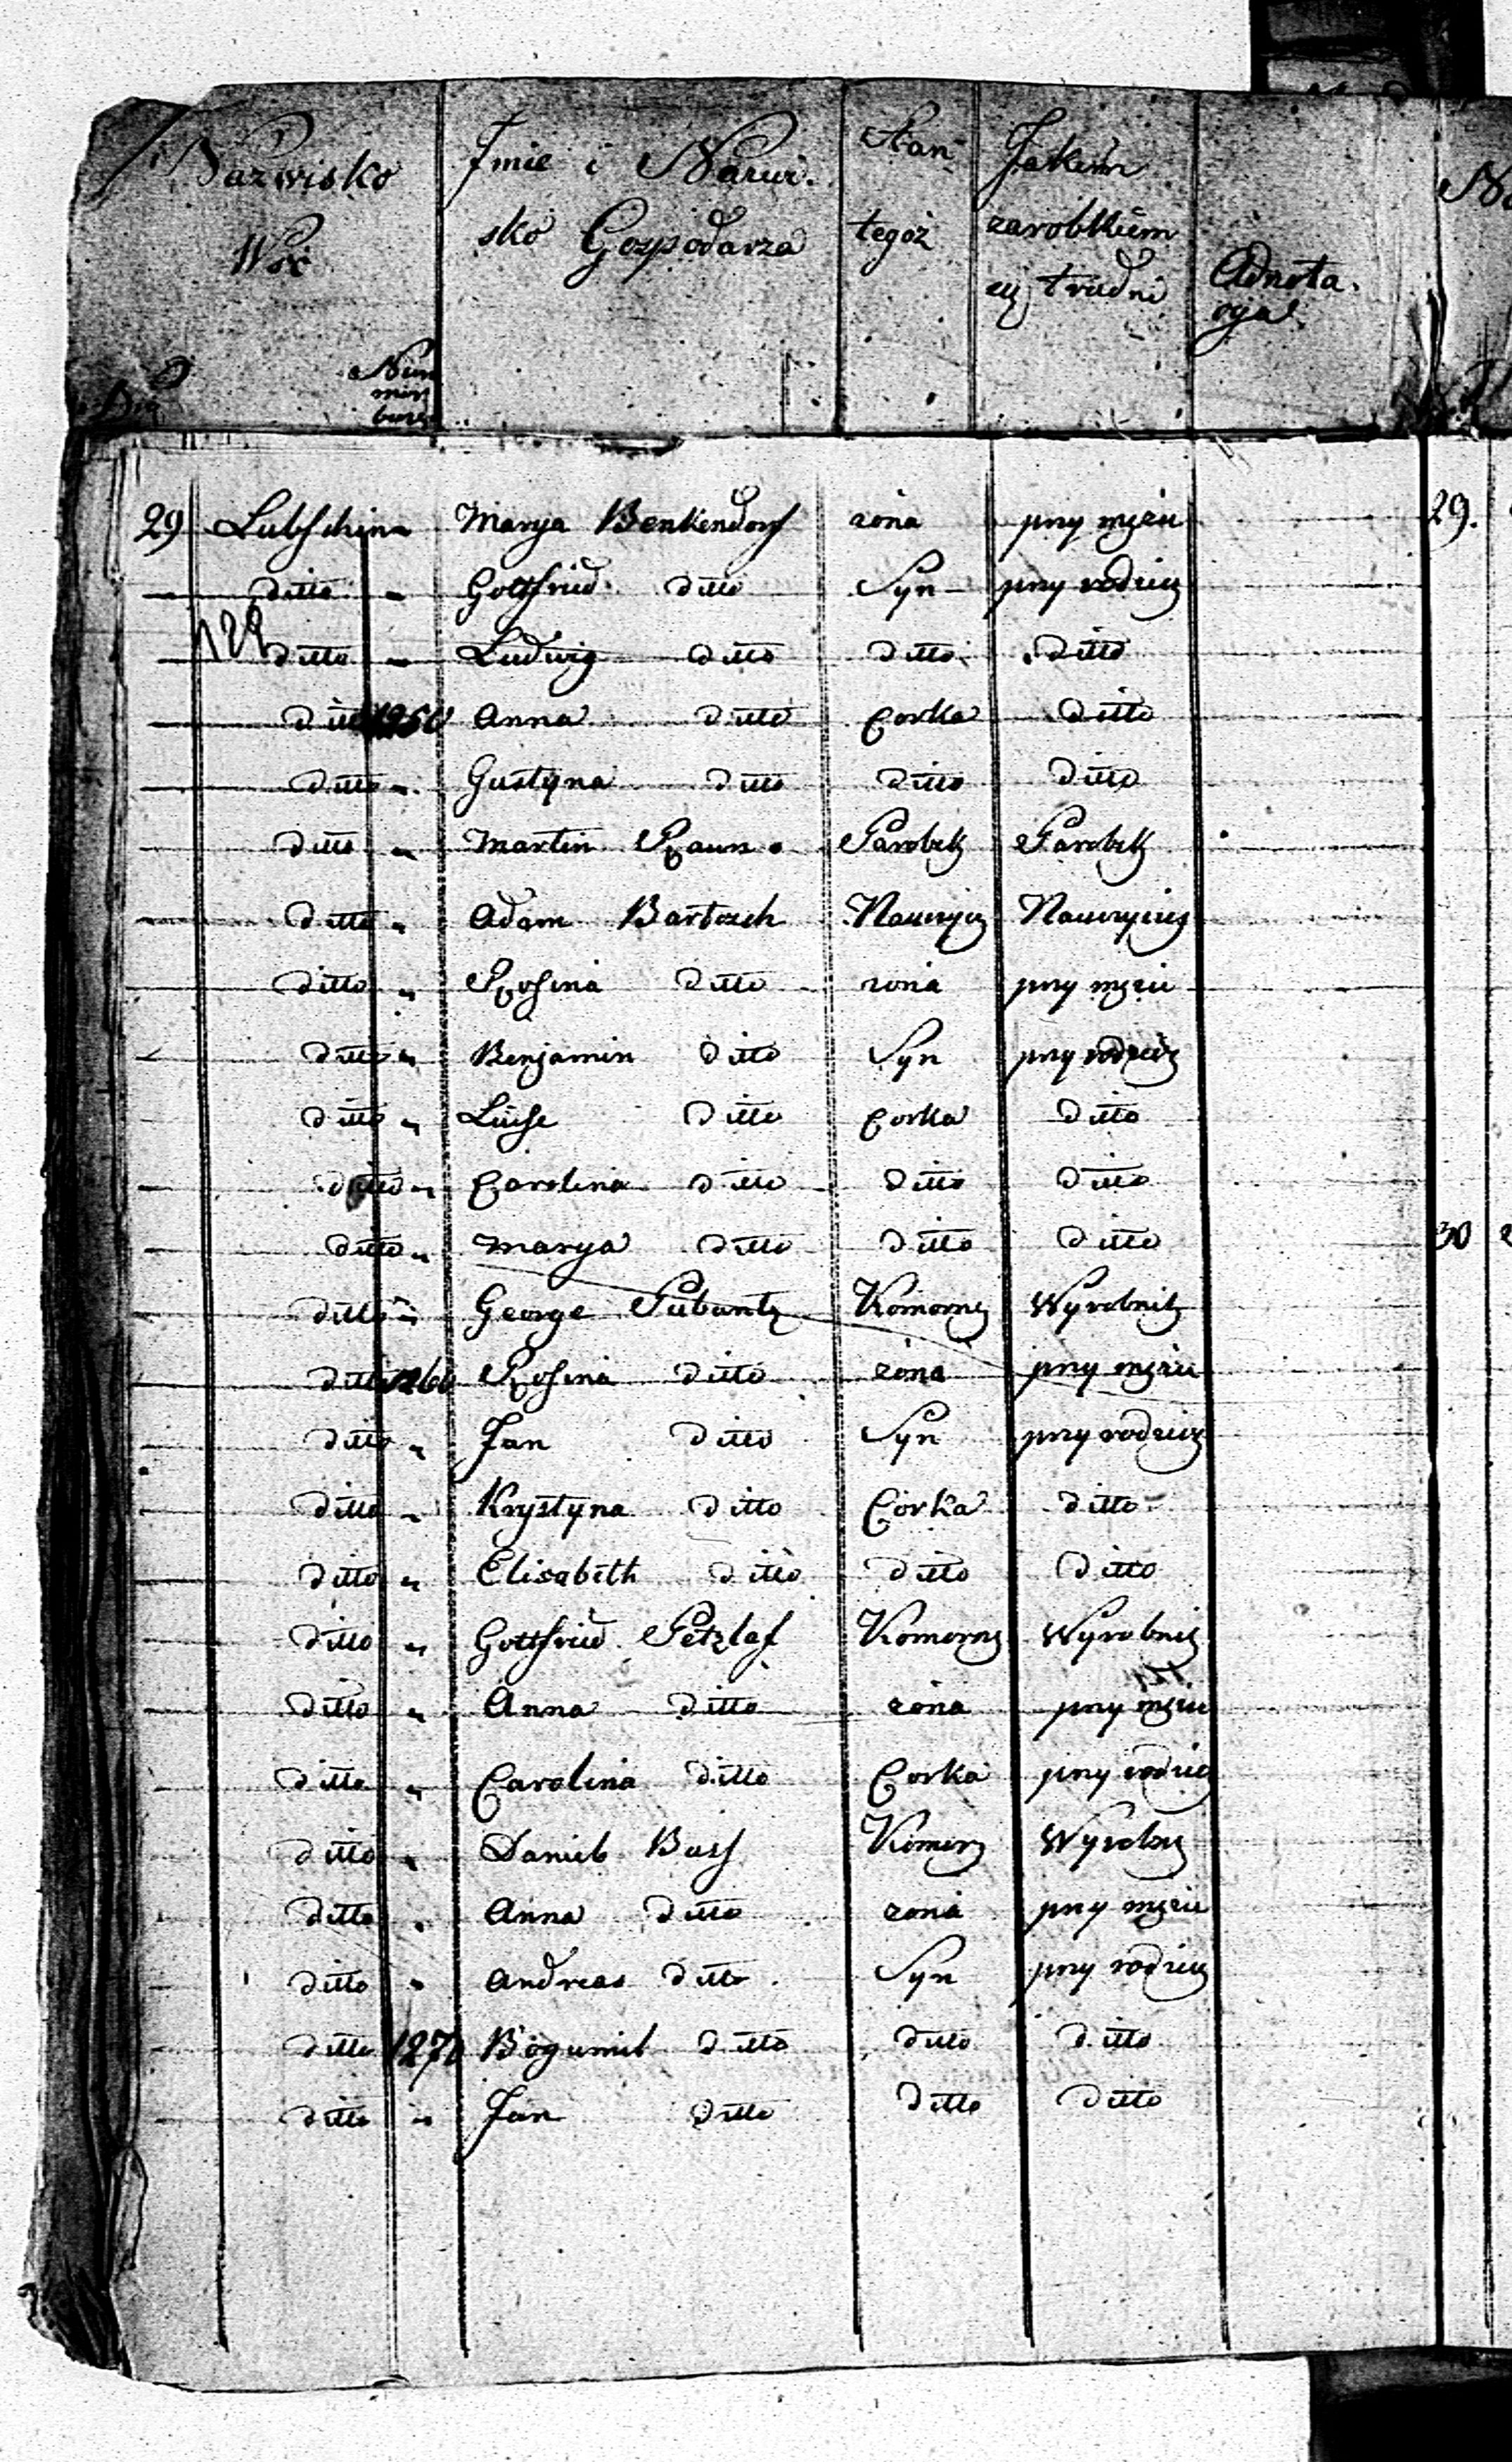 Nazwisko Wsi
Num mer bieżą
Jmie i Nazwi.
sko Gospodarza
Stan
tegoż
Jakiem
zarobkiem
się trudni
Adnota.
cyja
29 Lubschin " Marya Benkendorf żona przy mężu 29.
ditto " Gottfried ditto Syn przy rodzicz
122
ditto " Ludwig ditto ditto ditto
ditto 1250 Anna ditto Corka ditto
ditto " Gustyna ditto ditto ditto
ditto " Martin Raun Parobek Parobek
ditto " Adam Bartosch Nauczyc Nauczyciel
ditto " Rosina ditto żona przy mężu
ditto " Benjamin ditto Syn przy rodzicz
ditto " Luise ditto Corka ditto
ditto " Carolina ditto ditto ditto
ditto " Marya ditto ditto ditto 30
ditto " George Pubantz Komorny Wyrobnik
ditto 1260 Rosina ditto żona przy mężu
ditto " Jan ditto Syn przy rodzicz
ditto " Krystyna ditto Corka ditto
ditto " Elisabeth ditto ditto ditto
ditto " Gottfried Petzlaf Komorny Wyrobnik
ditto " Anna ditto żona przy mężu
ditto " Carolina ditto Corka przy rodzicz
ditto " Daniel Buss Komorn Wyrobn
ditto " Anna ditto żona przy mężu
ditto " Andreas ditto Syn przy rodzicz
ditto 1270 Bogumil ditto ditto ditto
ditto " Jan ditto ditto ditto